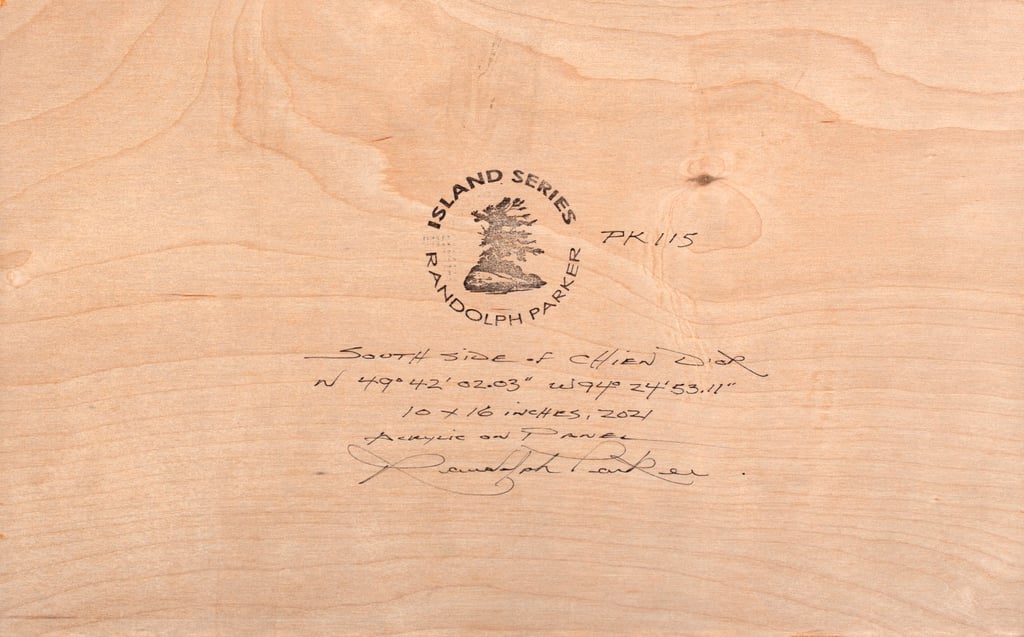 ISLAND SERIES
RANDOLPH PARKER
PK 115
SOUTH SIDE OF CHIEN D'OR
N 49° 42' 02.03" W 94° 24' 53.11"
10 x 16 INCHES, 2021
ACRYLIC ON PANEL
Randolph Parker.